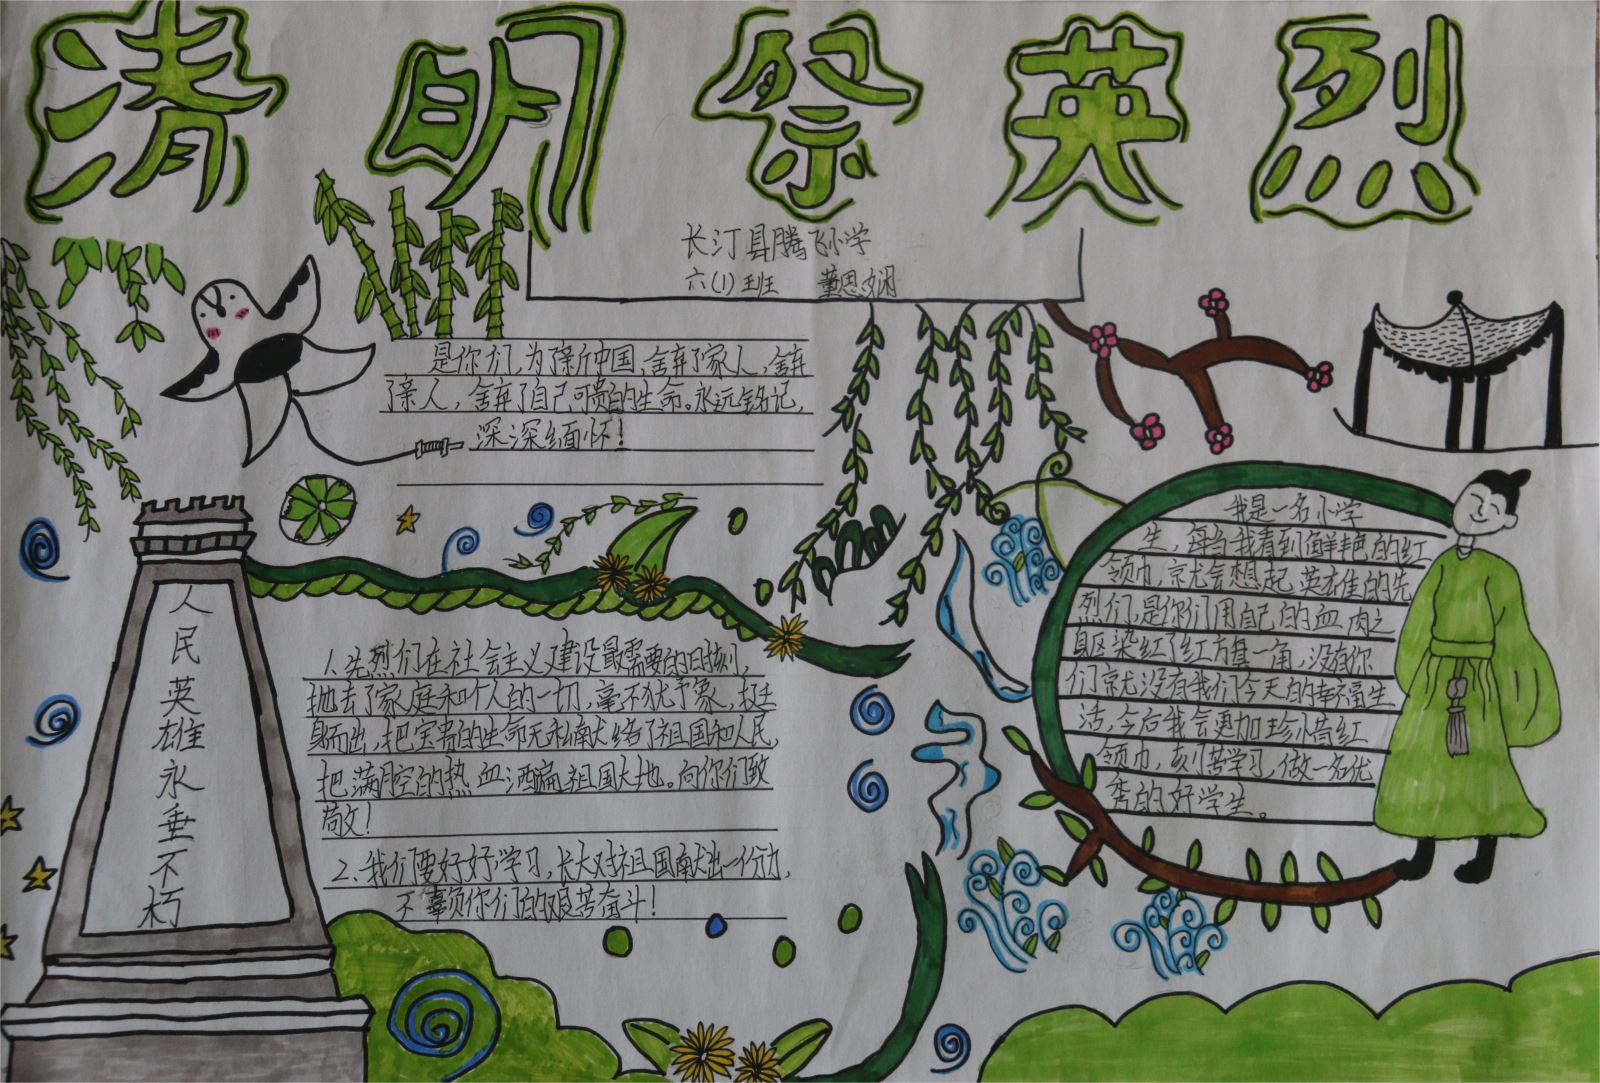 清明祭英烈
长汀县腾飞小学
六(1)班 董思娴
是你们，为了新中国，舍弃了家人，舍弃
了亲人，舍弃了自己可贵的生命。永远铭记，
深深缅怀！
人民英雄永垂不朽
1.先烈们在社会主义建设最需要的时刻，
抛去了家庭和个人的一切，毫不犹予象，挺
身而出，把宝贵的生命无私献给了祖国和人民，
把满腔的热血洒遍祖国大地。向你们致
敬！
2.我们要好好学习，长大对祖国献出一份力，
不辜负你们的艰苦奋斗！
我是一名小学
生，每当我看到鲜艳的红
领巾，就会想起英雄的先
烈们，是你们用自己的血肉之
躯染红了红方旗一角，没有你
们就没有我们今天的幸福生
活，今后我会更加珍惜红
领巾，刻苦学习，做一名优
秀的好学生。